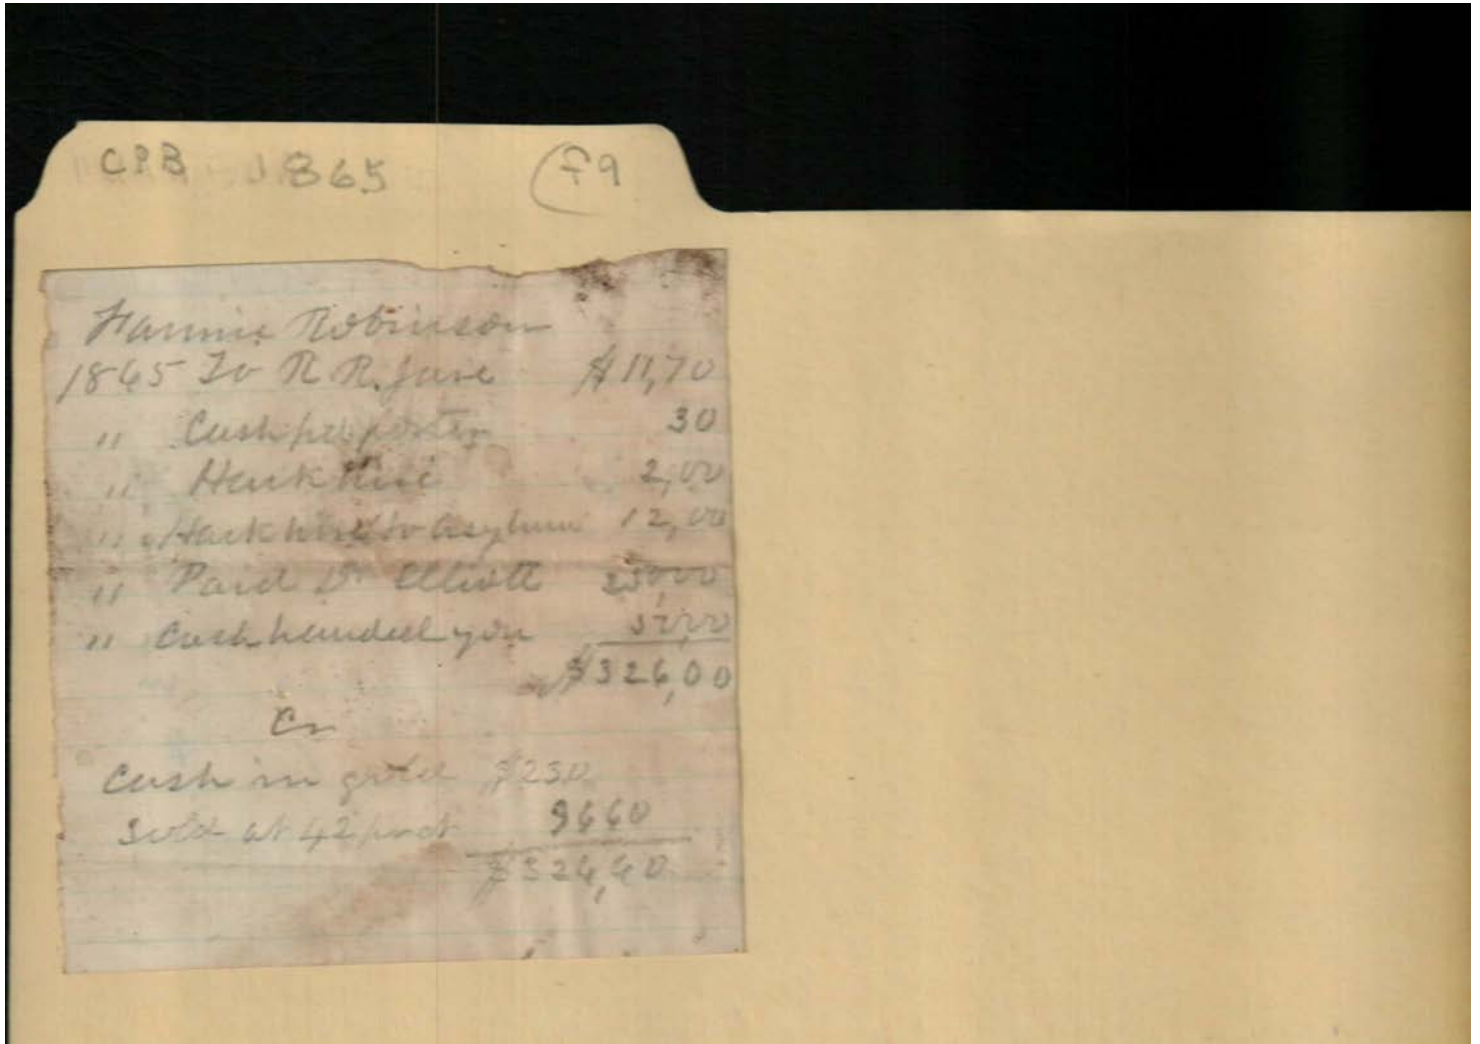 CPB 1865 (f9
Fannie Robinson
1865 To R R. fare $11,70
" Cash pd porter 30
" Hack hire 2,00
" Hack hire to asylum 12,00
" Paid Dr Elliott 250,00
" Cash handed you 50,00
$326,00
Cr
Cash in gold $230
Sold at 42 prct 9660
$326,60